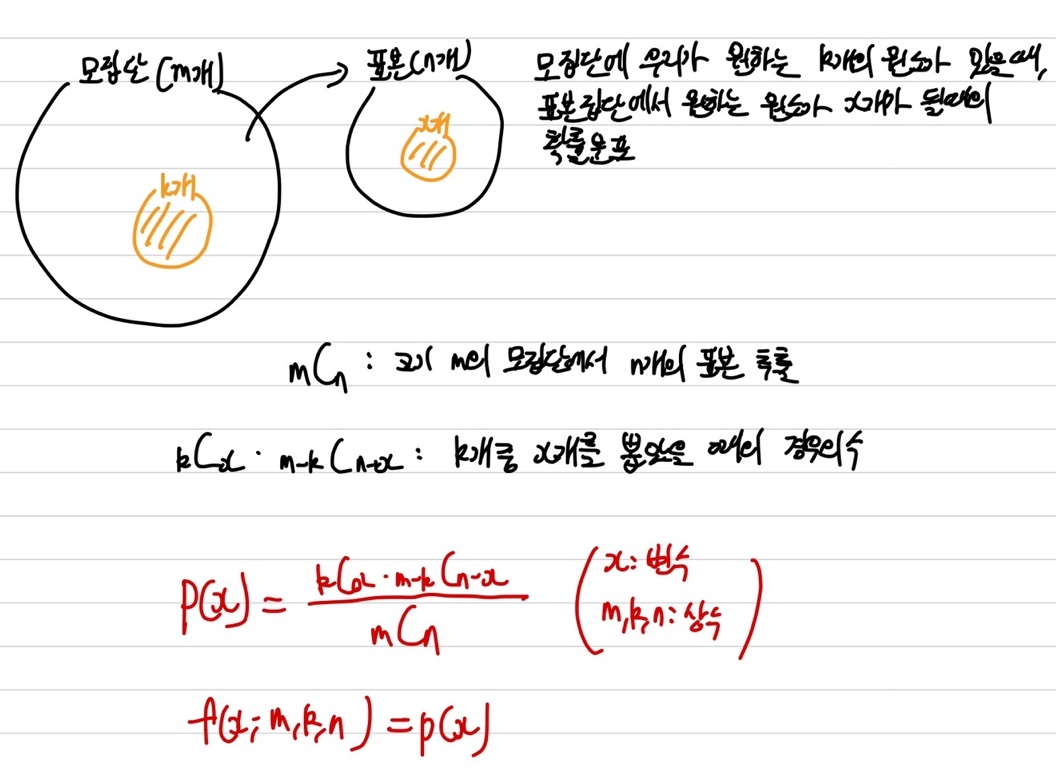 모집단 (m개)
표본 (n개)
모집단에 우리가 원하는 k개의 원소가 있을때,
표본집단에서 원하는 원소가 x개가 될때의
확률분포
x개
k개
mCn : 크기 m의 모집단에서 n개의 표본 추출
kCx · m-kCn-x : k개중 x개를 뽑았을 때의 경우의수
P(x) = kCx · m-kCn-x / mCn
(x: 변수
m,k,n: 상수)
f(x; m,k,n) = p(x)